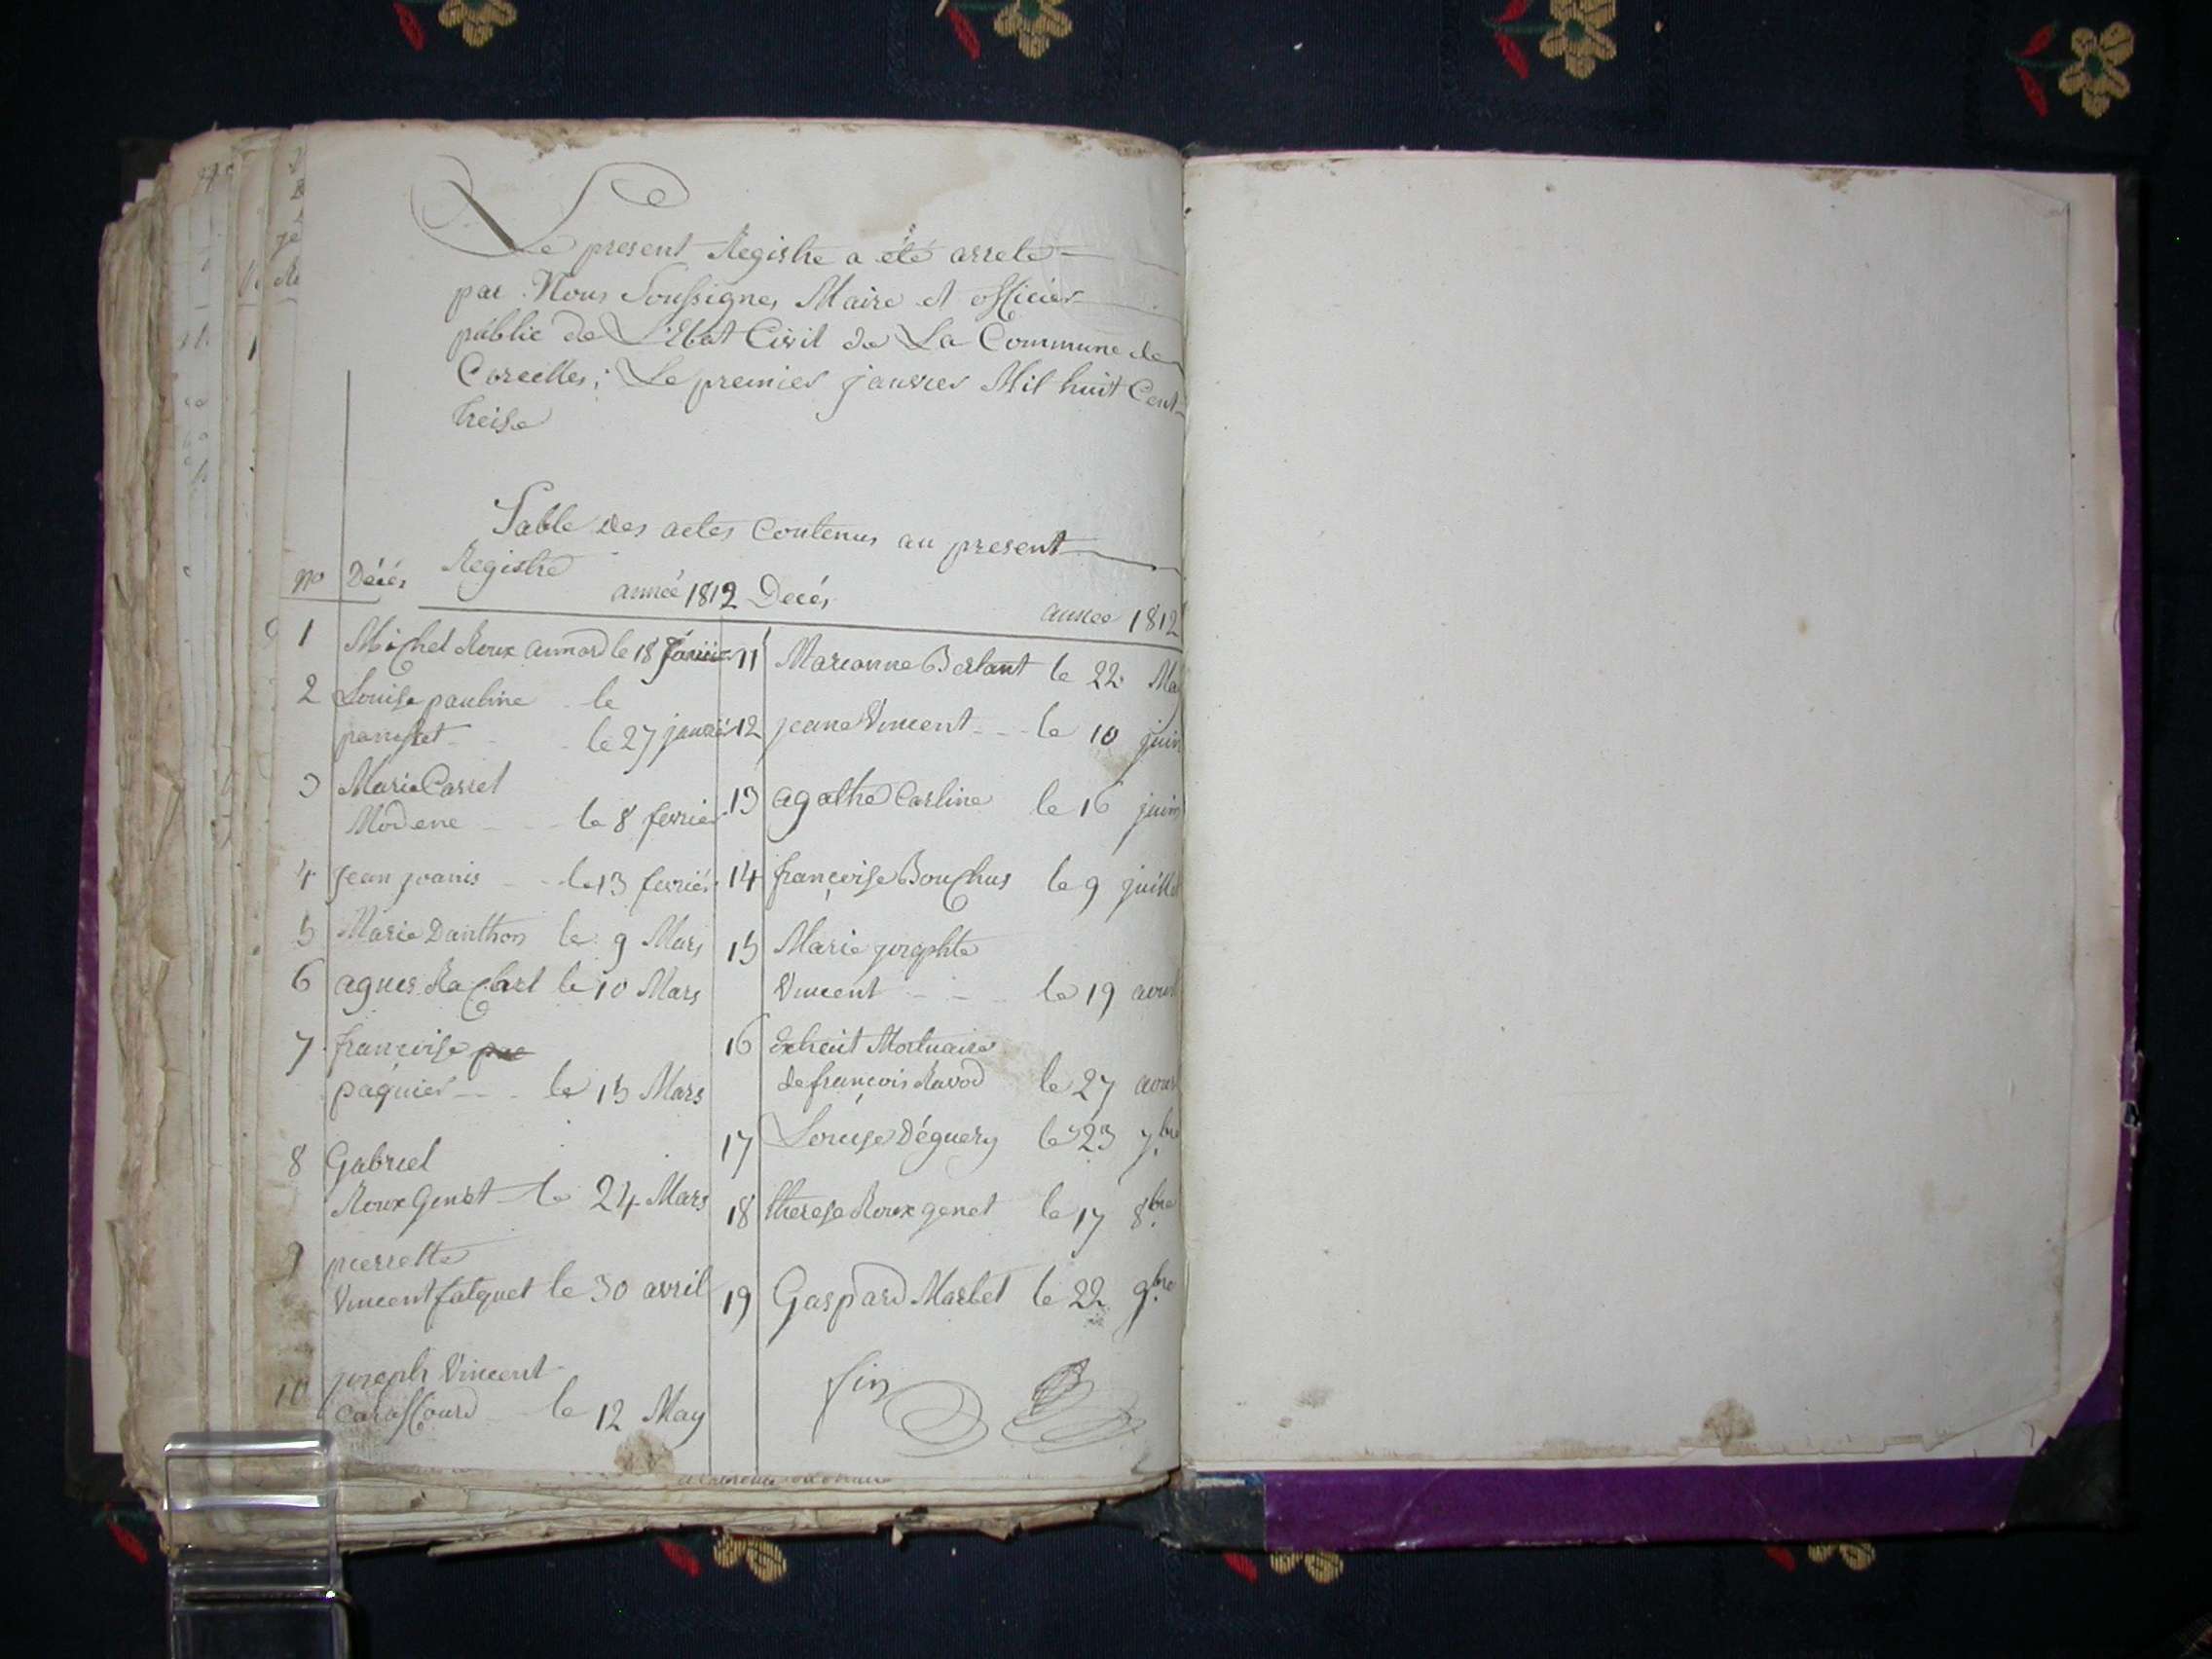 Le present Registre a été arrete
par Nous Soussignes Maire et officier
public de L'Etat Civil de La Commune de
Corcelles; Le premier janvier Mil huit Cent
treise
Table des actes Contenus au present
Registre
no Décés année 1812 Decés année 1812
1 Michel Roux le 18 Janvier
2 Louise pauline le
le 27 janvier
3 Marie Carret
Modene le 8 fevrier
4 Jean joanis le 13 fevrier
5 Marie Danthon le 9 Mars
6 agnes le 10 Mars
7 françoise
paquier le 15 Mars
8 Gabriel
Roux Genet le 24 Mars
9 pierrette
Vincent falquet le 30 avril
10 joseph Vincent
le 12 May
11 Marianne Berlant le 22 May
12 jeane Vincent le 10 juin
13 agathe Carline le 16 juin
14 françoise Bouchus le 9 juillet
15 Marie
Vincent le 19 aoust
16 Extrait Mortuaire
de françois Ravod le 27 aoust
17 Louise Déguery le 23 7.bre
18 therese Roux genet le 17 8.bre
19 Gaspard Marbet le 22 9.bre
fin